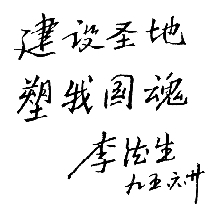 建设圣地
塑我国魂
李法生
九五.六.廿